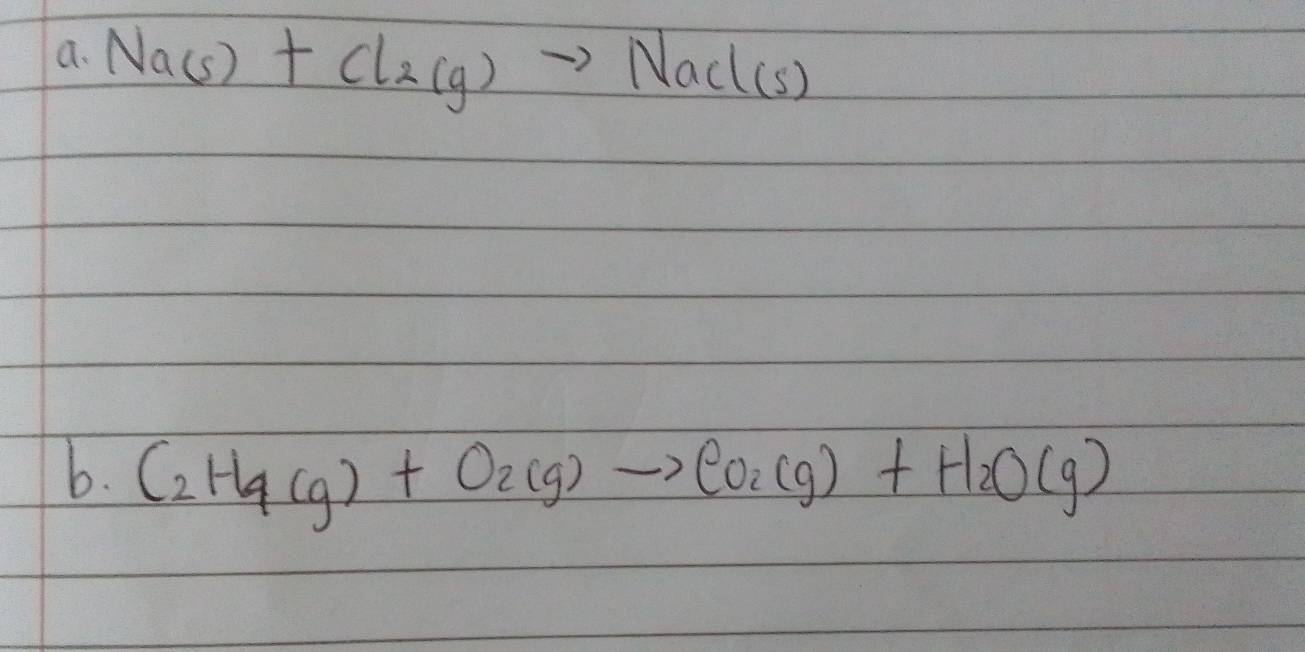 a. Na(s) + Cl₂(g) → Nacl(s)
b. C₂H₄(g) + O₂(g) → CO₂(g) + H₂O(g)